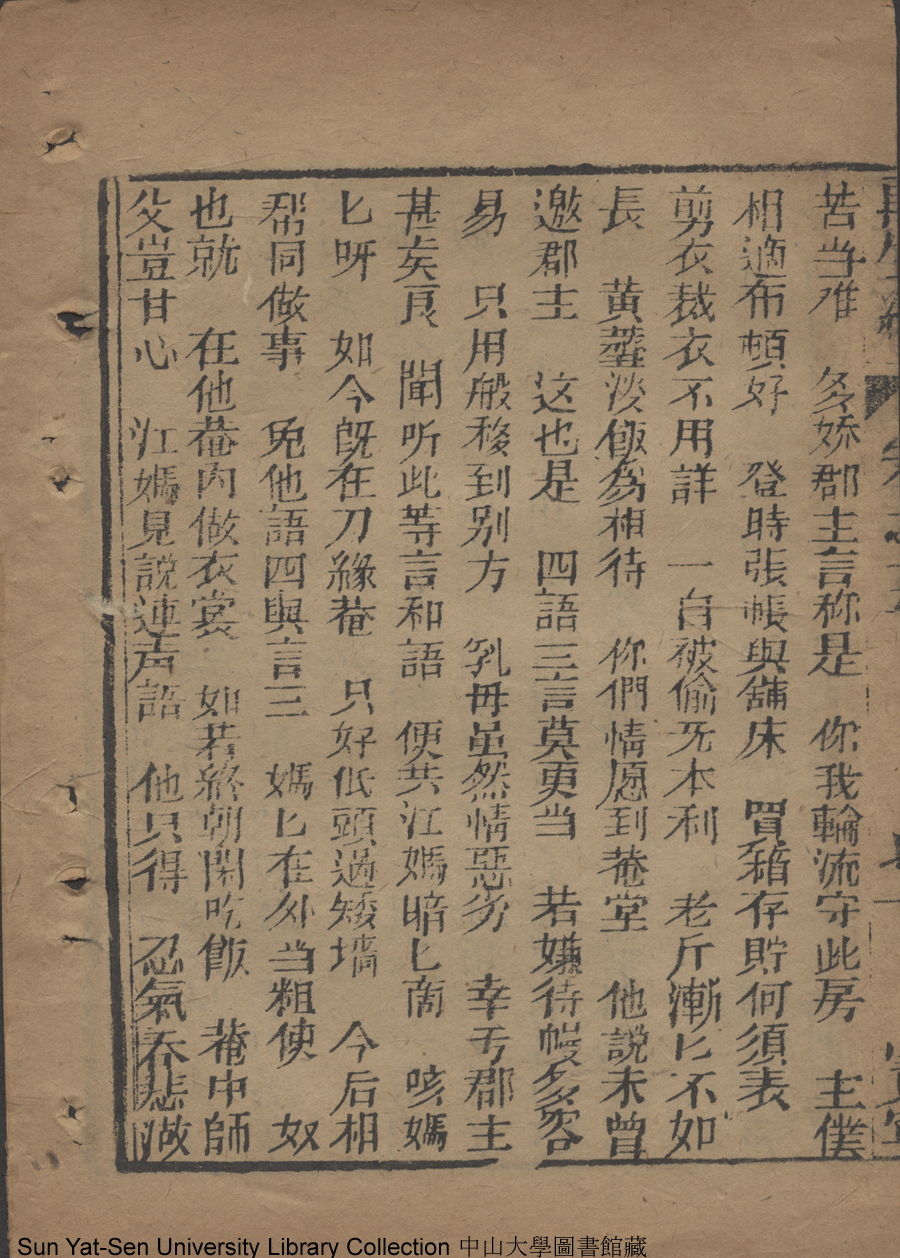 苦当难 多娇郡主言称是 你我輪流守此房 主僕
相適布頓好 登時張帳與舖床 買箱存貯何須表
剪衣裁衣不用詳 一自被偷死本利 老斤漸匕不如
長 黄虀淡飯為相待 你們情愿到菴堂 他説未曾
邀郡主 这也是 四語三言莫更当 若嫌待慢多容
易 只用般移到别方 乳毋虽然情惡劣 幸亐郡主
甚矣良 聞听此等言和語 便共江媽暗匕商 咳媽
匕呀 如今旣在刀緣菴 只好低頭過矮墻 今后相
帮同做事 免他語四與言三 媽匕在外当粗使 奴
也就 在他菴内做衣裳 如若終朝閑吃飯 菴中師
父豈甘心 江媽見説連声語 他只得 忍氣吞悲做
Sun Yat-Sen University Library Collection 中山大學圖書館藏